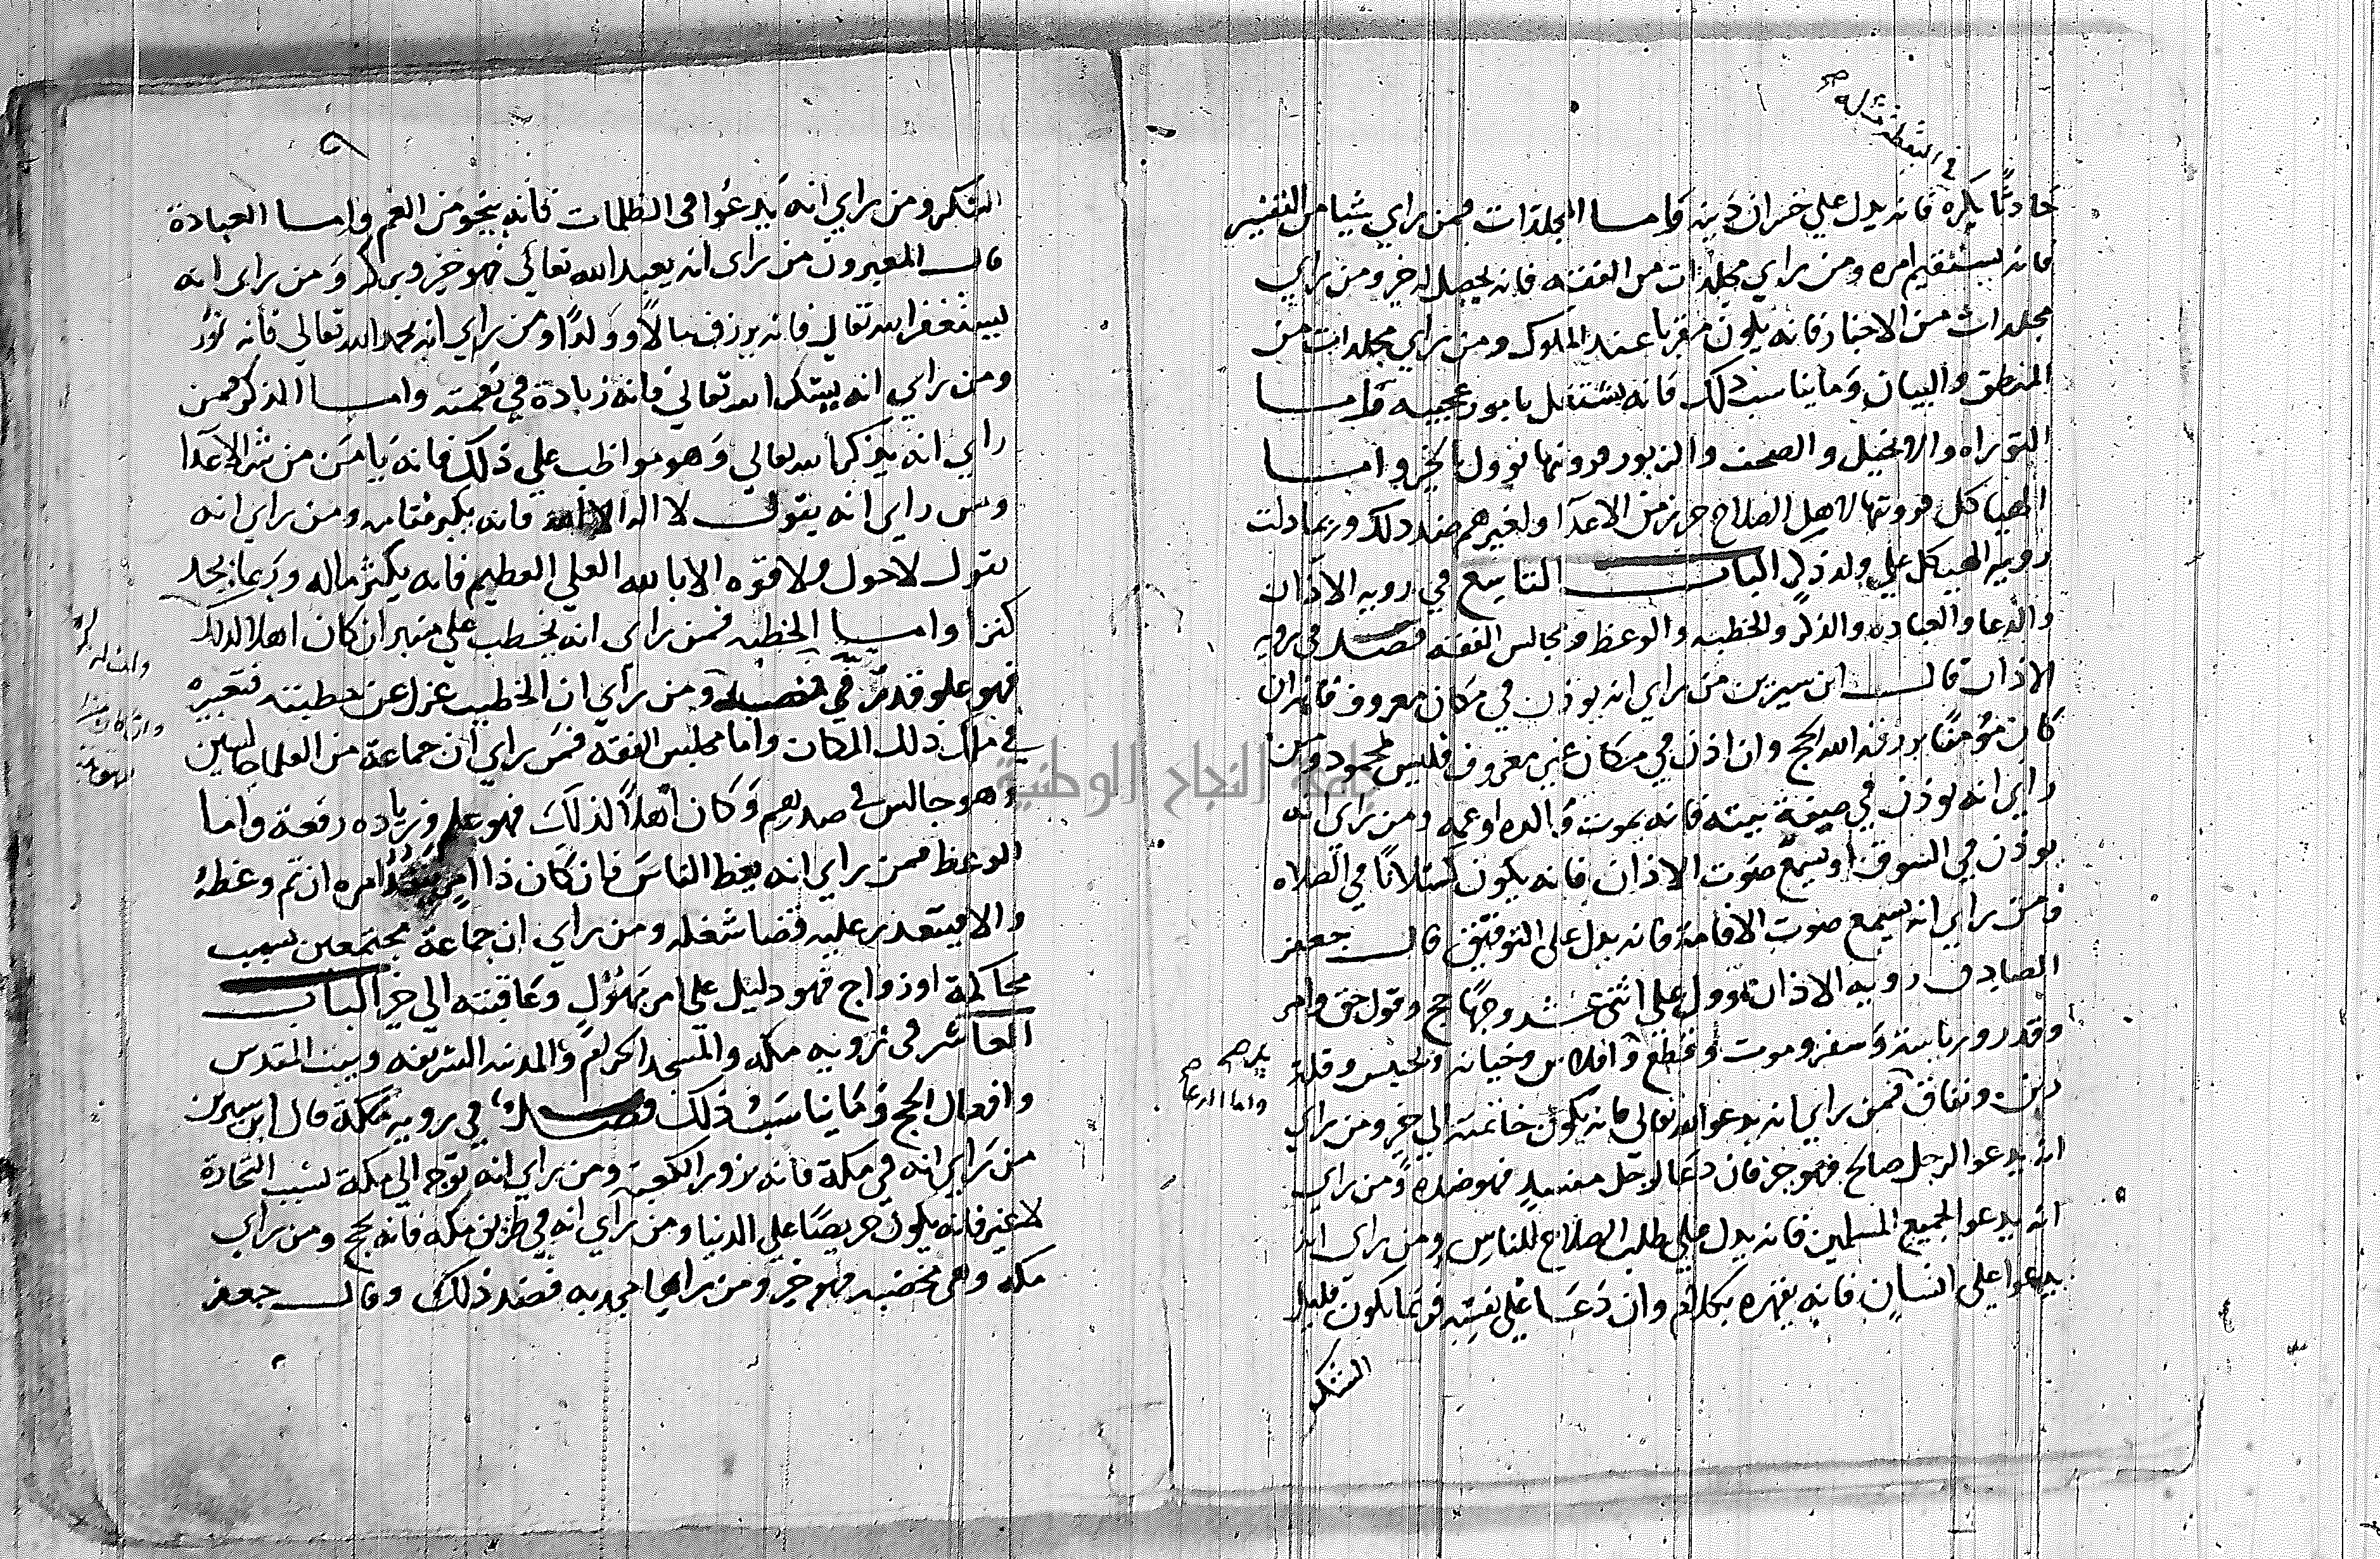 في اليقظة مثاله صح
حادثا يكره فانه يدل علي خسران دينه واما المجلدات فمن راي شيا من التفسير
فانه يستقيم امره ومن راي مجلدات من الفقه فانه يحصل له خير ومن راي
مجلدات من الاخبار فانه يكون مقربا عند الملوك ومن راي مجلدات من
المنطق والبيان وما يناسب ذلك فانه يشتغل بامور عجيبه واما
التوراه والانجيل والصحف والزبور فرويتها توول بالخير واما
الهياكل فرويتها لاهل الصلاح حرز من الاعدآ ولغيرهم ضد ذلك وربما دلت
رويه الهيكل علي ولد ذكر الباب التاسع في رويه الاذان
والدعا والعباده والذكر والخطبه والوعظ ومجالس الفقه فصل في رويه
الاذان قال ابن سيرين من راي انه يوذن في مكان معروف فانه ان
كان مؤمنا يرزقه الله الحج وان اذن في مكان غير معروف فليس بمحمود ومن
راي انه يوذن في صيفة بيته فانه يموت والده او عمه ومن راي انه
يوذن في السوق او يسمع صوت الاذان فانه يكون كسلانا في الصلاه
ومن راي انه يسمع صوت الاقامة فانه يدل علي التوفيق قال جعفر
الصادق رويه الاذان توول علي اثني عشر وجها حج وقول حق وامر
وقدر ورياسة وسفر وموت وقطع وافلاس وخيانه وتجسس وقلة
دين ونفاق فمن راي انه يدعو الله تعالي فانه يكون خاتمته الي خير ومن راي
واما الدعا صح
انه يدعو الرجل صالح فهو خير فان دعا لرجل مفسد فهو ضده ومن راي
انه يدعو لجميع المسلمين فانه يدل علي طلب الصلاح للناس ومن راي انه
يدعوا علي انسان فانه يقهره بكلام وان دعا علي نفسه فربما يكون قليل
الشكر
٩
الشكر ومن راي انه يدعوا في الظلمات فانه ينجو من الغم واما العبادة
قال المعبرون من راي انه يعبد الله تعالي فهو خير وبركة ومن راي انه
يستغفر الله تعالي فانه يرزق مالا وولدا ومن راي انه يحمد الله تعالي فانه
ومن راي انه يشكر الله تعالي فانه زيادة في نعمته واما الذكر فمن
راي انه يذكر الله تعالي وهو مواظب علي ذلك فانه يامن من شر الاعدآ
ومن راي انه يقول لا اله الا الله فانه ومن راي انه
يقول لا حول ولا قوه الا بالله العلي العظيم فانه يكثر ماله وربما يجد
كنزا واما الخطبه فمن راي انه يخطب علي منبر ان كان اهلا لذلك
فهو علو قدر في منصبه ومن راي ان الخطيب عزل عن خطبته فتعبيره
في ملك ذلك المكان واما مجلس الفقه فمن راي ان جماعة من العلما جالسين
وهو جالس في صدرهم وكان اهلا لذلك فهو علو وزياده رفعة واما
الوعظ فمن راي انه يعظ الناس فان كان ذا امر امره ان تم وعظه
والا فيتعذر عليه قضا شغله ومن راي ان جماعة مجتمعين بسبب
محاكمة او زواج فهو دليل علي امر مهول وعاقبته الي خير الباب
العاشر في رويه مكه والمسجد الحرام والمدينه الشريفه وبيت المقدس
وافعال الحج وما يناسب ذلك فصل في رويه مكة قال ابن سيرين
من راي انه في مكة فانه يزور الكعبة ومن راي انه توجه الي مكة بسبب التجارة
لا غير فانه يكون حريصا علي الدنيا ومن راي انه في طريق مكه فانه يحج ومن راي
مكه وهي مخصبه فهو خير ومن راها مجدبه فضد ذلك وقال جعفر